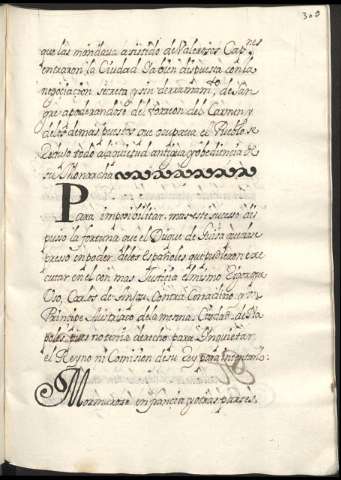 300
que las mandaua asistido de Valerosos Cap.nes
entraron la Ciudad Ya bien dispuesta con la
negociacion secreta y sin derramam.to de San
gre apoderandose del torreon del Carmen, y
delos demas puestos que ocupaua el Pueblo, se
Redujo todo ala quietud antigua y obediencia de
su Monarcha
Para imposibilitar mas este suceso dis
puso la fortuna que el Duque de Guisa quedase
preso en poder delos Españoles que pudieron exe
cutar en el con mas Justicia el mismo
que Vso Carlos de Anjou Contra Conradino, y Vn
Principe Ilustrisimo dela misma Ciudad de Na
poles, pues no tenia derecho para Inquietar
el Reyno ni Comision de su Rey para Intentarlo
Murmurose en francia y otras partes